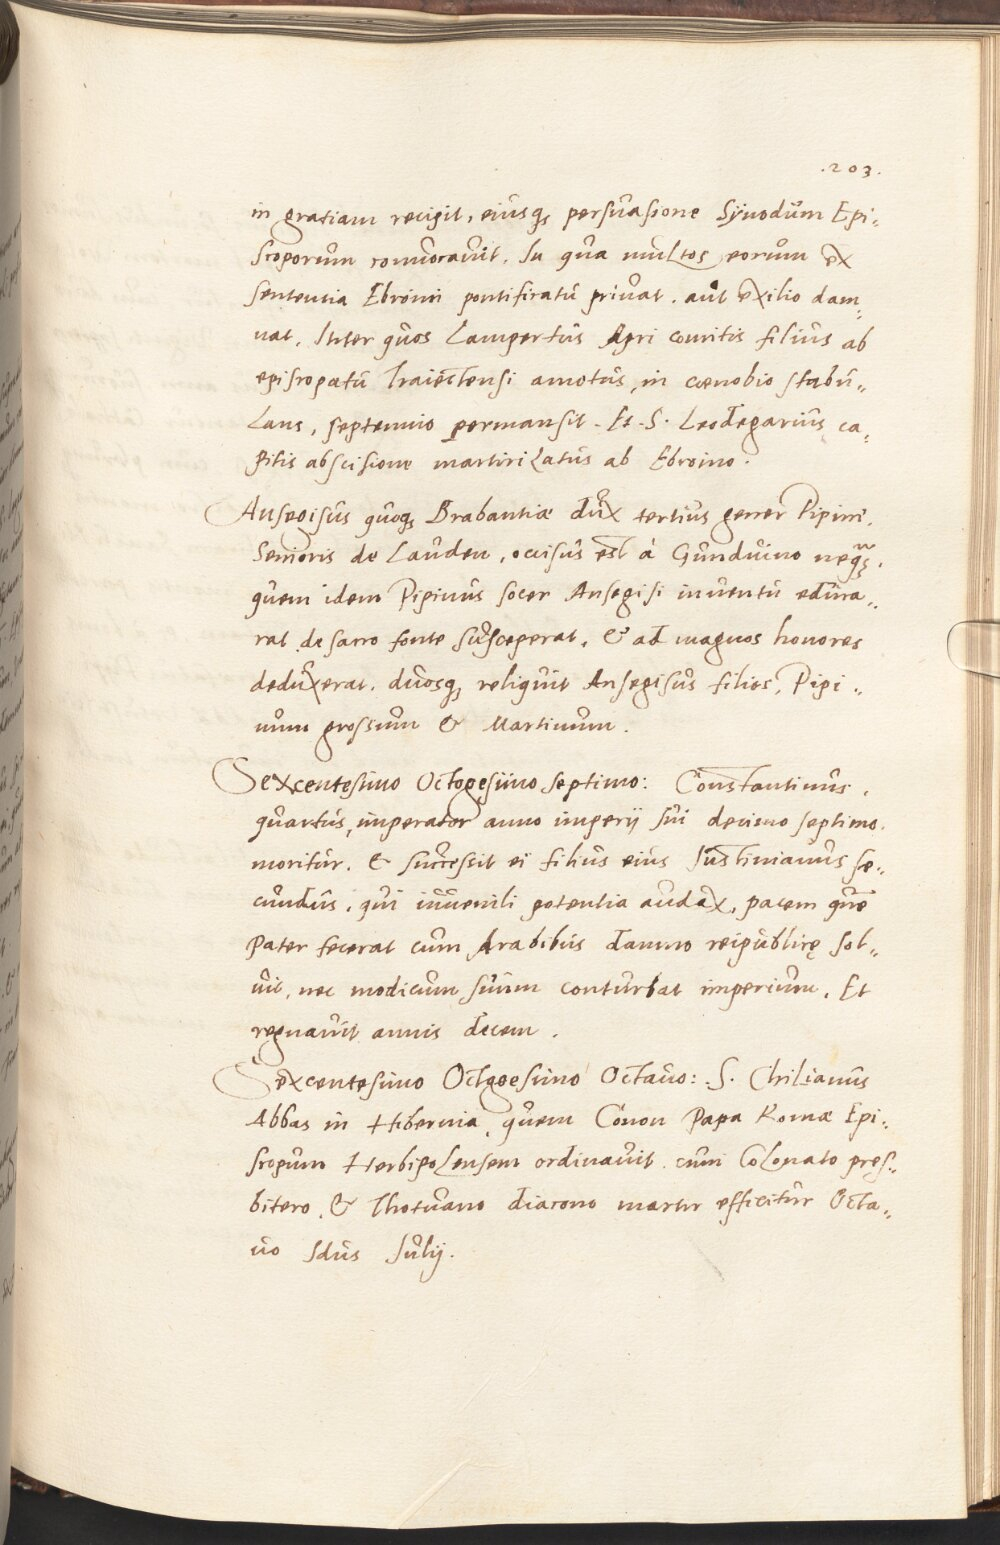 .203.
in gratiam recipit, eiusq3 persuasione Synodum Epi-
scoporum convocavit. In qua multos eorum ex
sententia Ebroini pontificatu privat. aut exilio dam-
nat. Inter quos Lampertus Apri comitis filius ab
episcopatu Traiectensi amotus, in cœnobio stabu-
Lans, septennio permansit. Et. S. Leodegarius ca-
pitis abscisione martirizatus ab Ebroino.
Ansegisus quoq3 Brabantiæ dux tertius gener Pipini.
Senioris de Lauden, occisus est à Gunduino neq̃3,
quem idem Pipinus socer Ansegisi inventu educa-
rat de sacro fonte susceperat. & ad magnos honores
deduxerat. duosq3 reliquit Ansegisus filios, Pipi-
num grossum & Martinum.
Sexcentesimo Octogesimo septimo: Constantinus,
quartus, imperator anno imperij sui decimo septimo.
moritur. & successit ei filius eius Justinianus se-
cundus, qui iuvenili potentia audax, pacem quã
pater fecerat cum Arabibus damno reipublicę sol-
vit, nec modicum suum conturbat imperium. Et
regnavit annis decem.
Sexcentesimo Octgoesimo Octavo: S. Chilianus
Abbas in Hibernia, quem Conon Papa Romæ Epi-
scopum Herbipolensem ordinavit. cum Colonato pręs-
bitero, & Thotuano diacono martir efficitur Octa-
vo Idus Julij.